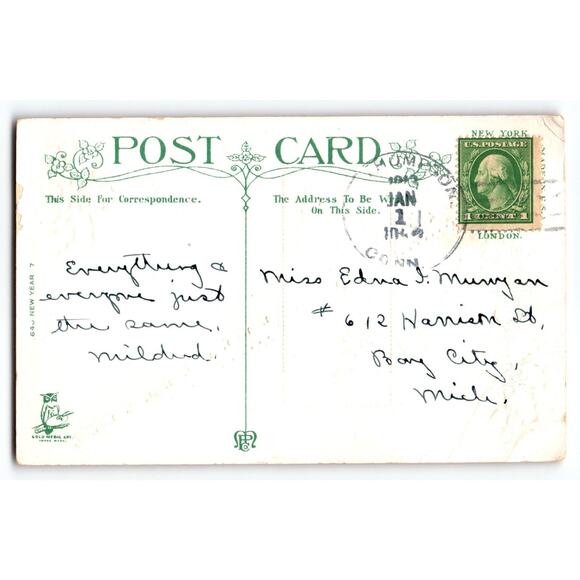 POST CARD
This Side For Correspondence.
The Address To Be
On This Side.
NEW YORK
U.S. POSTAGE
1 CENT 1
LONDON.
JAN
1
CONN
Everything &
everyone just
the same.
Mildred.
Miss Edna I. Munyan
# 612 Harrison St,
Bay City,
Mich.
640 NEW YEAR 7
GOLD MEDAL ART.
TRADE MARK.